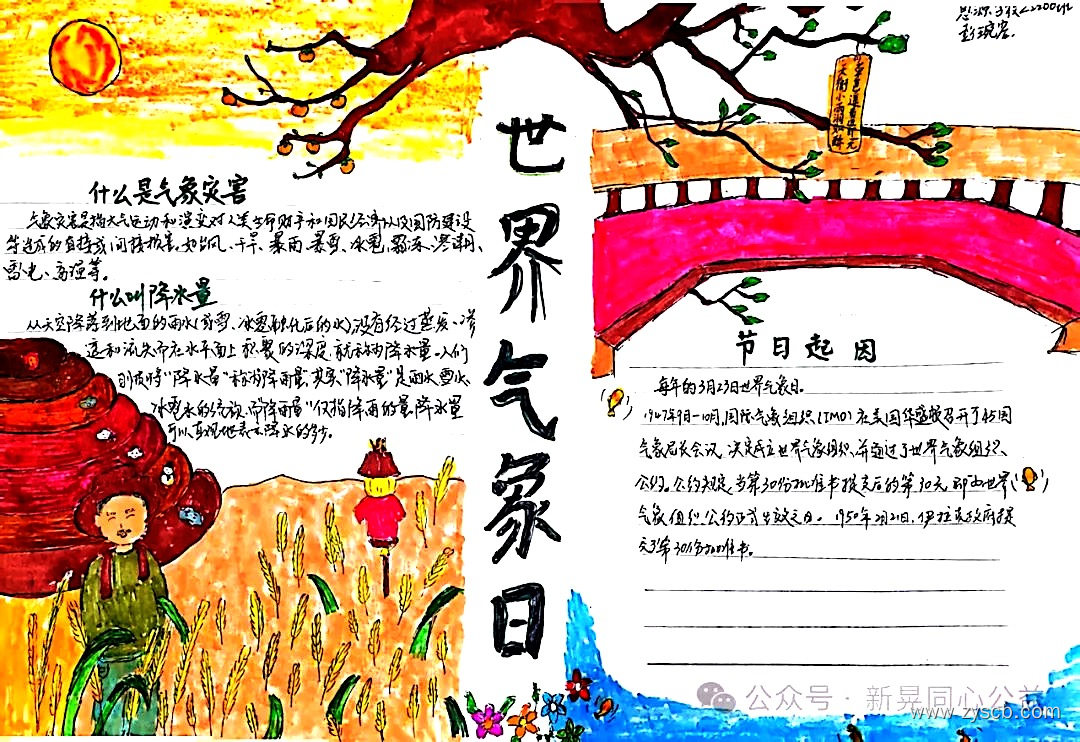 世界气象日
什么是气象灾害
气象灾害是指大气运动和演变对人类生命财产和国民经济以及国防建设
等造成的直接或间接损害。如台风、干旱、暴雨、暴雪、冰雹、霜冻、寒潮、
雷电、高温等。
什么叫降水量
从天空降落到地面的雨水(雪、冰雹融化后的水),没有经过蒸发、渗
透和流失而在水平面上积聚的深度,就称为降水量。人们
"降水量"称为降雨量,其实"降水量"是雨水、雪水、
冰雹水的统称,而"降雨量"仅指降雨的量,降水量
可以直观地表示降水的多少。
天街小雨润如酥
节日起因
每年的3月23日世界气象日。
1947年9月-10月,国际气象组织(IMO)在美国华盛顿召开了45国
气象局长会议,决定成立世界气象组织,并通过了世界气象组织
公约。公约规定,当第30份批准书提交后的第30天,即为世界
气象组织公约正式生效之日。1950年2月21日,伊拉克政府提
交了第30份批准书。
公众号·新晃同心公益
www.zyscb.com